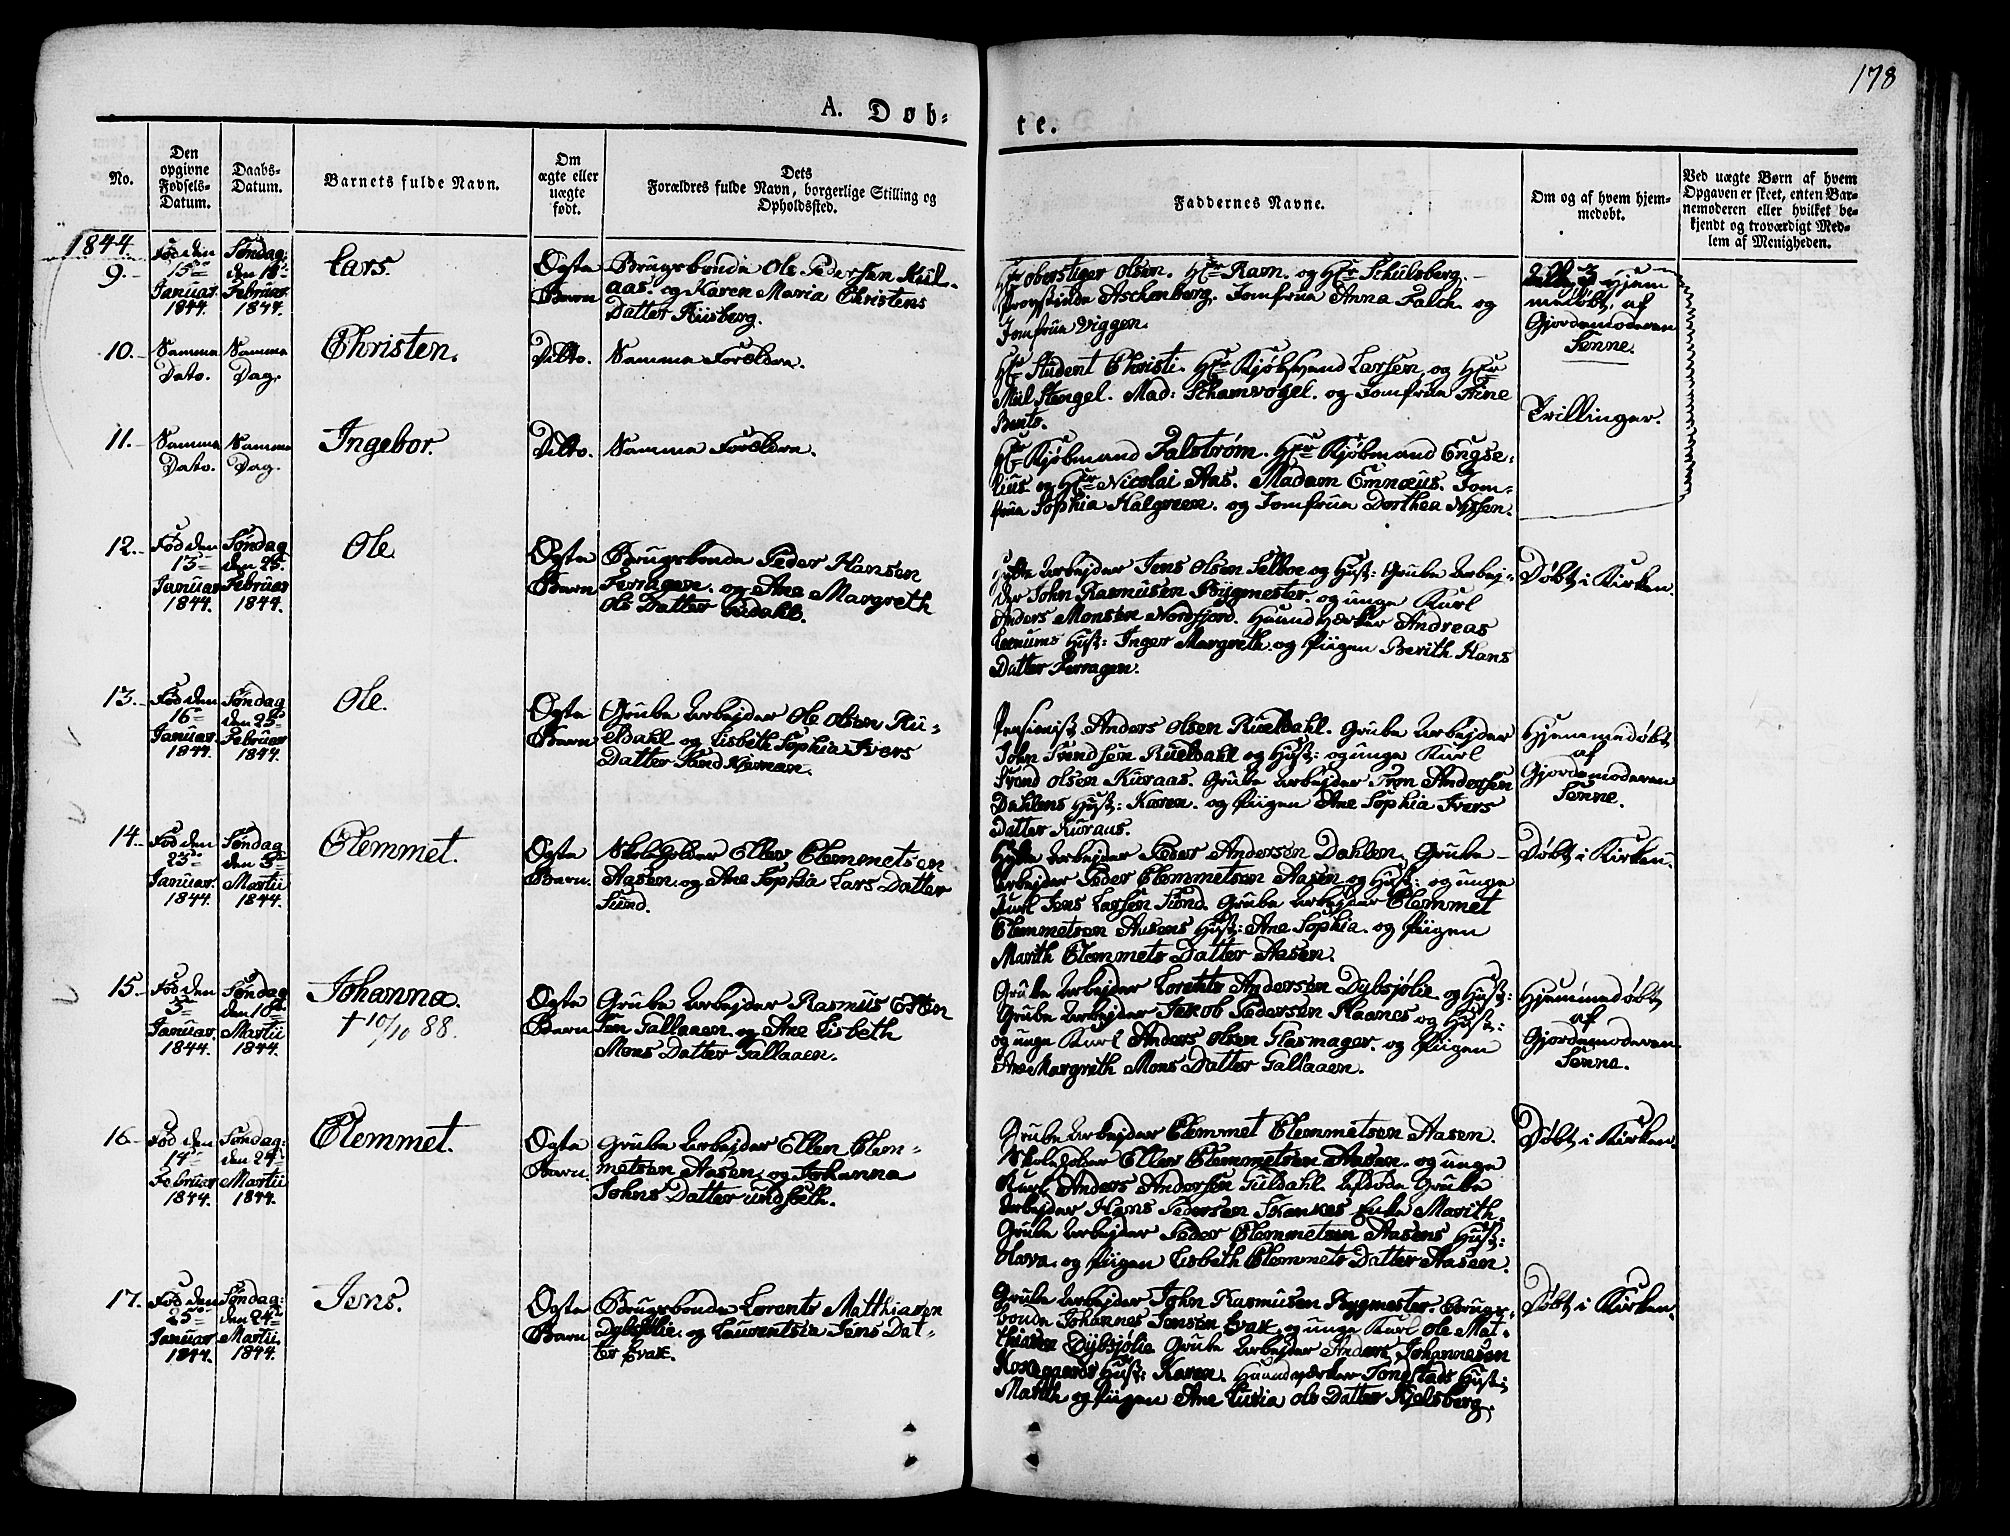 178
A. Døb-
te.
No.
Den opgivne Fødsels-Datum.
Daabs-Datum.
Barnets fulde Navn.
Om ægte eller uægte født.
Dets Forældres fulde Navn, borgerlige Stilling og Opholdssted.
Faddernes Navne.
Om og af hvem hjem-medøbt.
Ved uægte Børn af hvem Opgaven er skeet, enten Bar-nemoderen eller hvilket be-kjendt og troværdigt Med-lem af Menigheden.
1844.
9.
Fød den
15de
Januar.
1844.
Søndag
den 18de
Februar
1844.
Lars.
Ægte
Barn
Brugsbonde Ole Pedersen
aas. og Karen Maria Christens
Datter Riisberg.
Hr Oberstiger Olsen. Hr Ram. og Hr Schulsberg.
Provstinde Aschenberg. Jomfrue Anna Falck. og
Jomfrue Viggen.
Alle 3 Hjem
medøbt af
Gjordemoderen
Sønne.
10.
Samme
Dato.
Samme
Dag.
Christen.
Ditto.
Samme Forældre.
Hr Student Christi. Hr Larsen, og Hr
Stengel. Mad: Schamvogel. og Jomfrue Stine
Bents.
Trillinger.
11.
Samme
Dato.
Samme
Dag.
Ingebor.
Ditto.
Samme Forældre.
Hr Kjøbmand Falstrøm. Hr Kjøbmand Engze-
lius og Hr Nicolai Aas. Madam Emnæus. Jom-
frue Sophia Halgreen. og Jomfrue Dorthea Nyssen.
12.
Fød den
13de
Januar
1844.
Søndag
den 25.
Februar
1844.
Ole
Ægte
Barn
Brugsbonde Peder Hansen
Ferragen. og Ane Margreth
Ols Datter
Hytte Arbejder Jens Olsen Selboe og Hust: Grube Arbej-
der John Rasmusen Bygmester. og unge Karl
Anders Monsen Nordfjord. Haandværker Andreas
Hust: Inger Margreth. og Piigen Berith Hans
Datter Ferragen.
Døbt i Kirken.
13.
Fød den
16de
Januar
1844.
Søndag
den 25de
Februar
1844.
Ole.
Ægte
Barn
Grube Arbejder Ole Olsen Ru-
eldahl og Lisbeth Sophia Ivers
Datter
Pensionist Anders Olsen Rueldahl. Grube Arbejder
John Svendsen Rueldahl og Hust: og unge Karl
Svend Olsen Kuraas. Grube Arbejder Tron Andersen
Dahlens Hust: Karen. og Piigen Ane Sophia Ivers
Datter Kuraas.
Hjemmedøbt
af
Gjordemoderen
Sønne.
14.
Fød den
23de
Januar.
1844.
Søndag
den 3de
Martii
1844.
Clemmet.
Ægte
Barn.
Skoleholder Eller Clemmetsen
Aasen. og Ane Sophia Lars Datter
Sund.
Hytte Arbejder Peder Andersen Dahlen. Grube
Arbejder Peder Clemmetsen Aasen og Hust: og unge
Karl Jens Larsen Sund. Grube Arbejder Clemmet
Clemmetsen Aasens Hust: Ane Sophia. og Piigen
Marith Clemmets Datter Aasen.
Døbt i Kirken.
15.
Fød den
3de
Januar.
1844.
Søndag
den 10de
Martii
1844.
Johanna.
† 10/10 88.
Ægte
Barn
Grube Arbejder Rasmus Esten
sen Gallaaen. og Ane Lisbeth
Mons Datter Gallaaen.
Grube Arbejder Lorents Andersen Dybsjølie og Hust:
Grube Arbejder Jakob Pedersen Haanes og Hust:
og unge Karl Anders Olsen Flasmager. og Piigen
Ane Margreth Mons Datter Gallaaen.
Hjemmedøbt
af
Gjordemoderen
Sønne.
16.
Fød den
14de
Februar
1844.
Søndag:
den 24de
Martii
1844.
Clemmet.
Ægte
Barn.
Grube Arbejder Ellen Clem-
metsen Aasen, og Johanna
Johns Datter
Grube Arbejder Clemmet Clemmetsen Aasen.
Skoleholder Eller Clemmetsen Aasen. og unge
Karl Anders Andersen Guldahl. Afdøde Grube
Arbejder Hans Pedersen Skankes Enke Marith.
Grube Arbejder Peder Clemmetsen Aasens Hust:
Olava. og Piigen Lisbeth Clemmets Datter Aasen.
Døbt i Kirken.
17.
Fød den
25de
Januar
1844.
Søndag:
den 24de
Martii.
1844.
Jens.
Ægte
Barn
Brugsbonde Lorents Matthiasen
Dybsjølie og Laurentsia Jens Dat-
ter Evak.
Grube Arbejder John Rasmusen Bygmester. Brugs-
bonde Johannes Jensen Evak, og unge Karl Ole Mat-
thiasen Dybsjølie Grube Arbejder Anders Johannesen
Hust: Karen. Haandværker Tonstads Hust:
Marith og Piigen Ane Lucia Ols Datter Kjelsberg.
Døbt i Kirken.